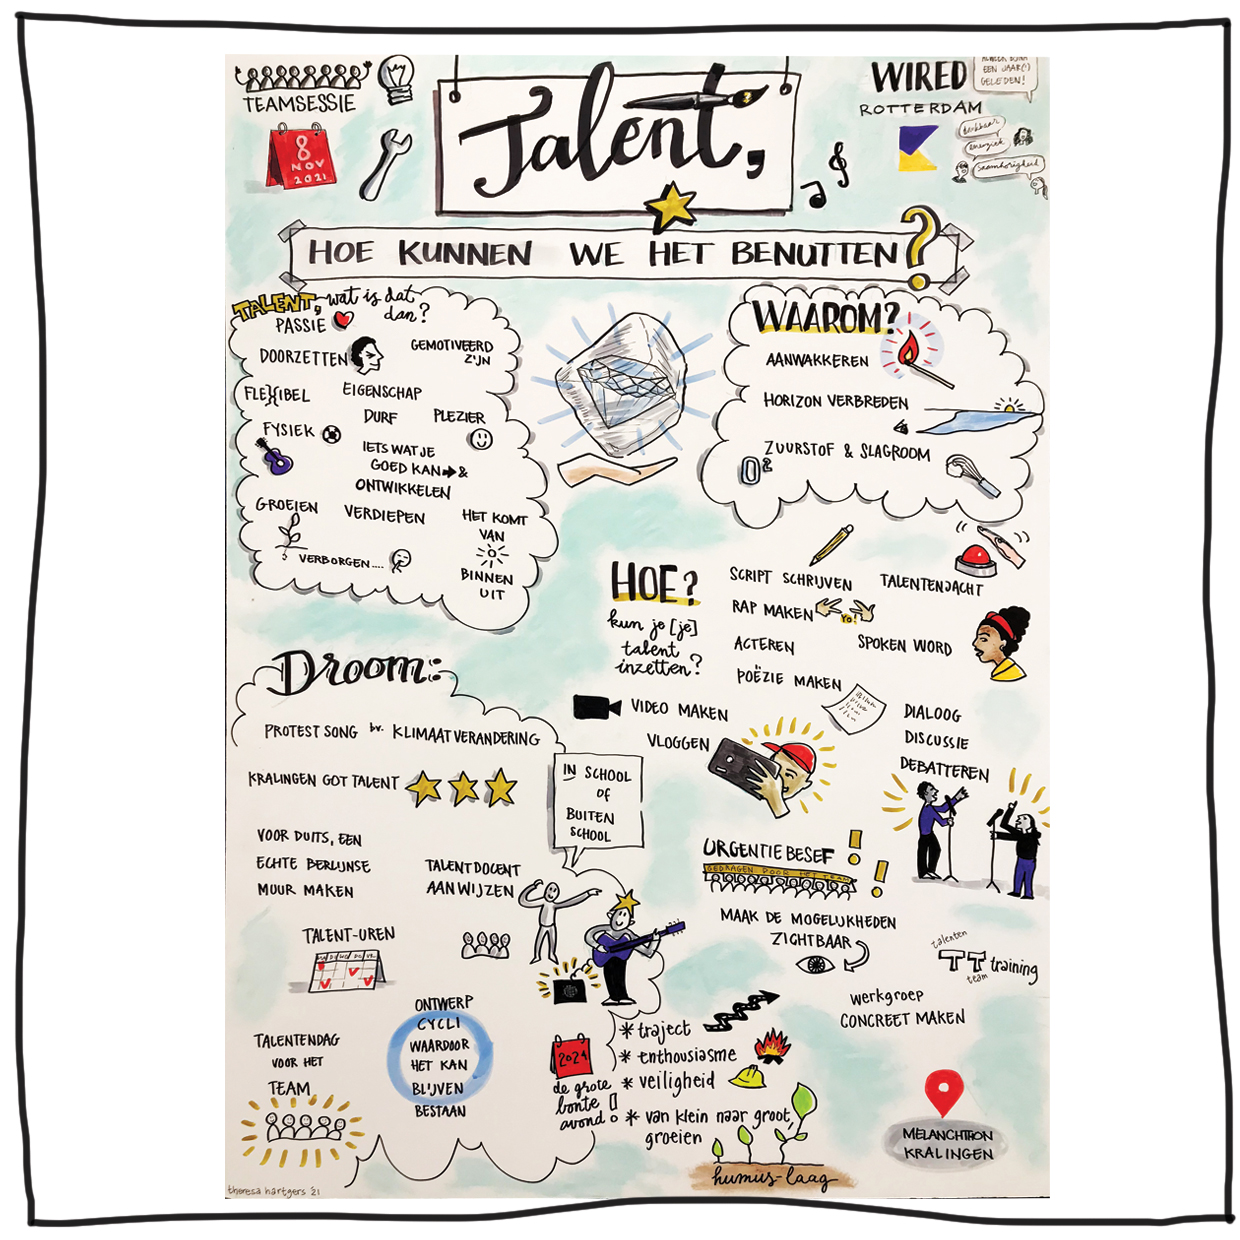 TEAMSESSIE
8
NOV
2021
Talent,
WIRED
ROTTERDAM
EEN JAAR(!)
GELEDEN!
energiek
saamhorigheid
HOE KUNNEN WE HET BENUTTEN?
TALENT, wat is dat
dan?
PASSIE
DOORZETTEN
GEMOTIVEERD
ZIJN
FLEXIBEL
EIGENSCHAP
DURF
PLEZIER
FYSIEK
IETS WAT JE
GOED KAN → &
ONTWIKKELEN
GROEIEN
VERDIEPEN
HET KOMT
VAN
BINNEN
UIT
VERBORGEN....
WAAROM?
AANWAKKEREN
HORIZON VERBREDEN
ZUURSTOF & SLAGROOM
O²
HOE?
kun je [je]
talent
inzetten?
SCRIPT SCHRIJVEN
TALENTENJACHT
RAP MAKEN
YO!
ACTEREN
SPOKEN WORD
POËZIE MAKEN
VIDEO MAKEN
VLOGGEN
DIALOOG
DISCUSSIE
DEBATTEREN
Droom:
PROTEST SONG bv. KLIMAATVERANDERING
KRALINGEN GOT TALENT
IN SCHOOL
OF
BUITEN
SCHOOL
VOOR DUITS, EEN
ECHTE BERLIJNSE
MUUR MAKEN
TALENTDOCENT
AANWIJZEN
TALENT-UREN
URGENTIE BESEF !!
GEDRAGEN DOOR HET TEAM
MAAK DE MOGELIJKHEDEN
ZICHTBAAR
talenten
TT training
team
werkgroep
CONCREET MAKEN
ONTWERP
CYCLI
WAARDOOR
HET KAN
BLIJVEN
BESTAAN
TALENTENDAG
VOOR HET
TEAM
2024
de grote
bonte
avond!
* traject
* enthousiasme
* veiligheid
* van klein naar groot
groeien
humus-laag
MELANCHTHON
KRALINGEN
theresa hartgers '21